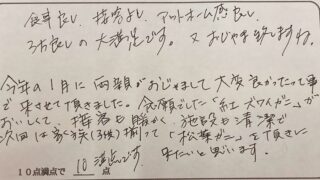 食事良し、接客よし、アットホーム感良し
3方良しの大満足です。又おじゃま致しますね。
今年の1月に両親がおじゃまして大変良かったって事
で来させて頂きました。念願でした「紅ズワイガニ」が
おいしくて、接客も暖かく、施設も清潔で
次回は家族(3彼)揃って「松葉ガニ」を頂きに
来たいと思います。
10点満点で 10 点 満点です